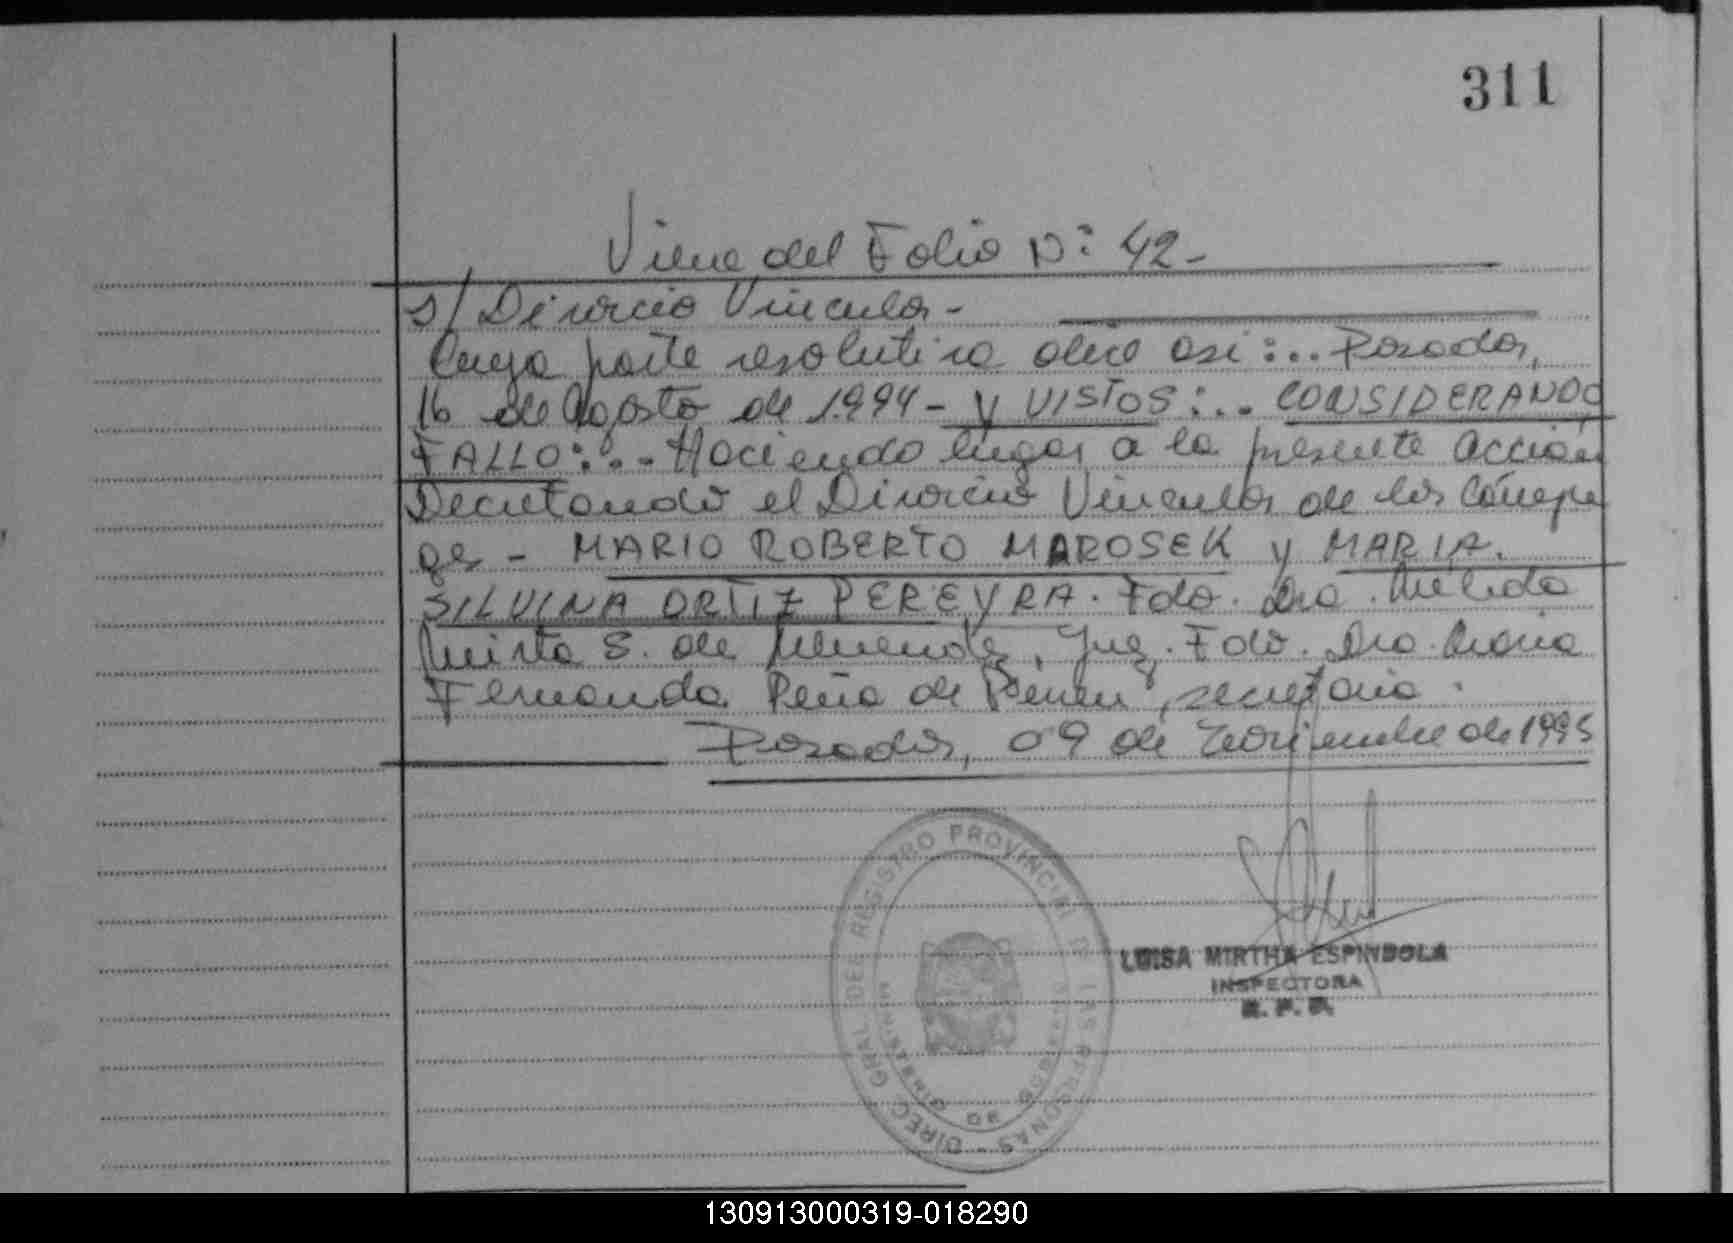 311
Viene del Folio Nº 42-
s/ Divorcio Vincular-
Cuya parte resolutiva dice asi:... Posadas,
16 de Agosto de 1.994- y VISTOS:... CONSIDERANDO
FALLO:... Haciendo lugar a la presente acción
Decretando el Divorcio Vincular de los Cónyu
ges - MARIO ROBERTO MAROSEK y MARIA.
SILVINA ORTIZ PEREYRA. Fdo. Dra. Mélida
Mirta S. de, Juez. Fdo. Dra. María
Fernanda Peña de, secretaria.
Posadas, 09 de Noviembre de 1995
DIREC. GRAL. DEL REGISTRO PROVINCIAL DE LAS PERSONAS -
MINISTERIO DE GOBIERNO
LUISA MIRTHA ESPINDOLA
INSPECTORA
R. P. P.
130913000319-018290